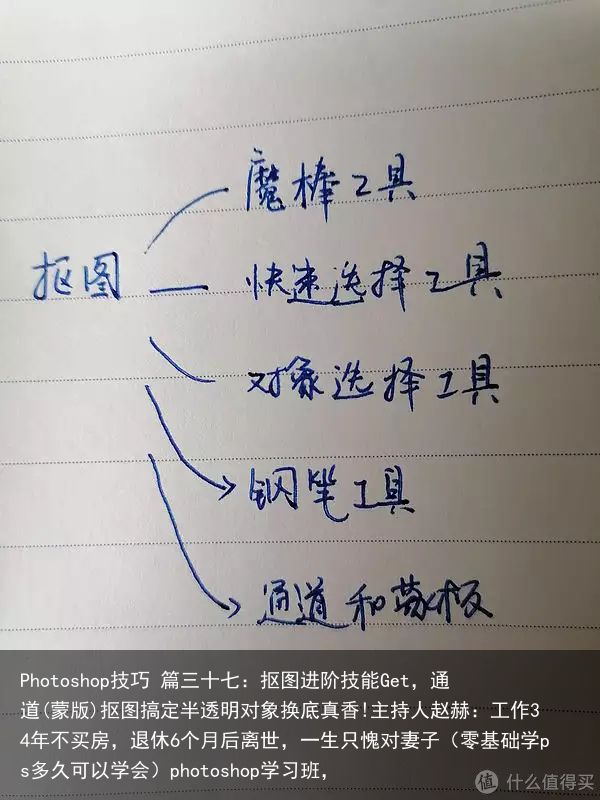 魔棒工具
抠图
快速选择工具
对象选择工具
钢笔工具
通道和蒙板
Photoshop技巧 篇三十七：抠图进阶技能Get，通
道(蒙版)抠图搞定半透明对象换底真香!主持人赵赫：工作3
4年不买房，退休6个月后离世，一生只愧对妻子（零基础学p
s多久可以学会）photoshop学习班，
值 什么值得买